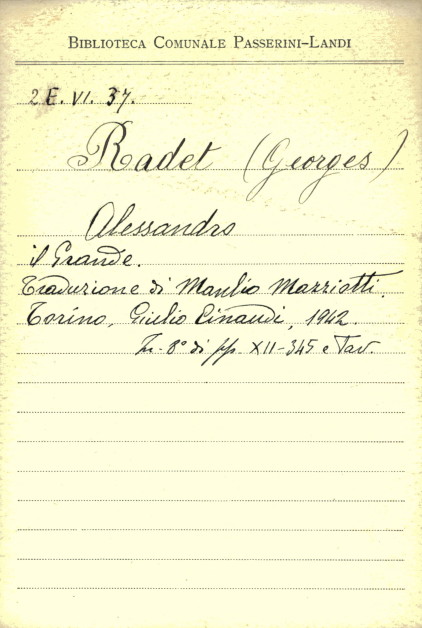 BIBLIOTECA COMUNALE PASSERINI-LANDI
2 E. VI. 37.
Radet (Georges)
Alessandro
il Grande.
Traduzione di Manlio Mazziotti.
Torino, Giulio Einaudi, 1942.
In-8° di pp. XII-345 e Tav.